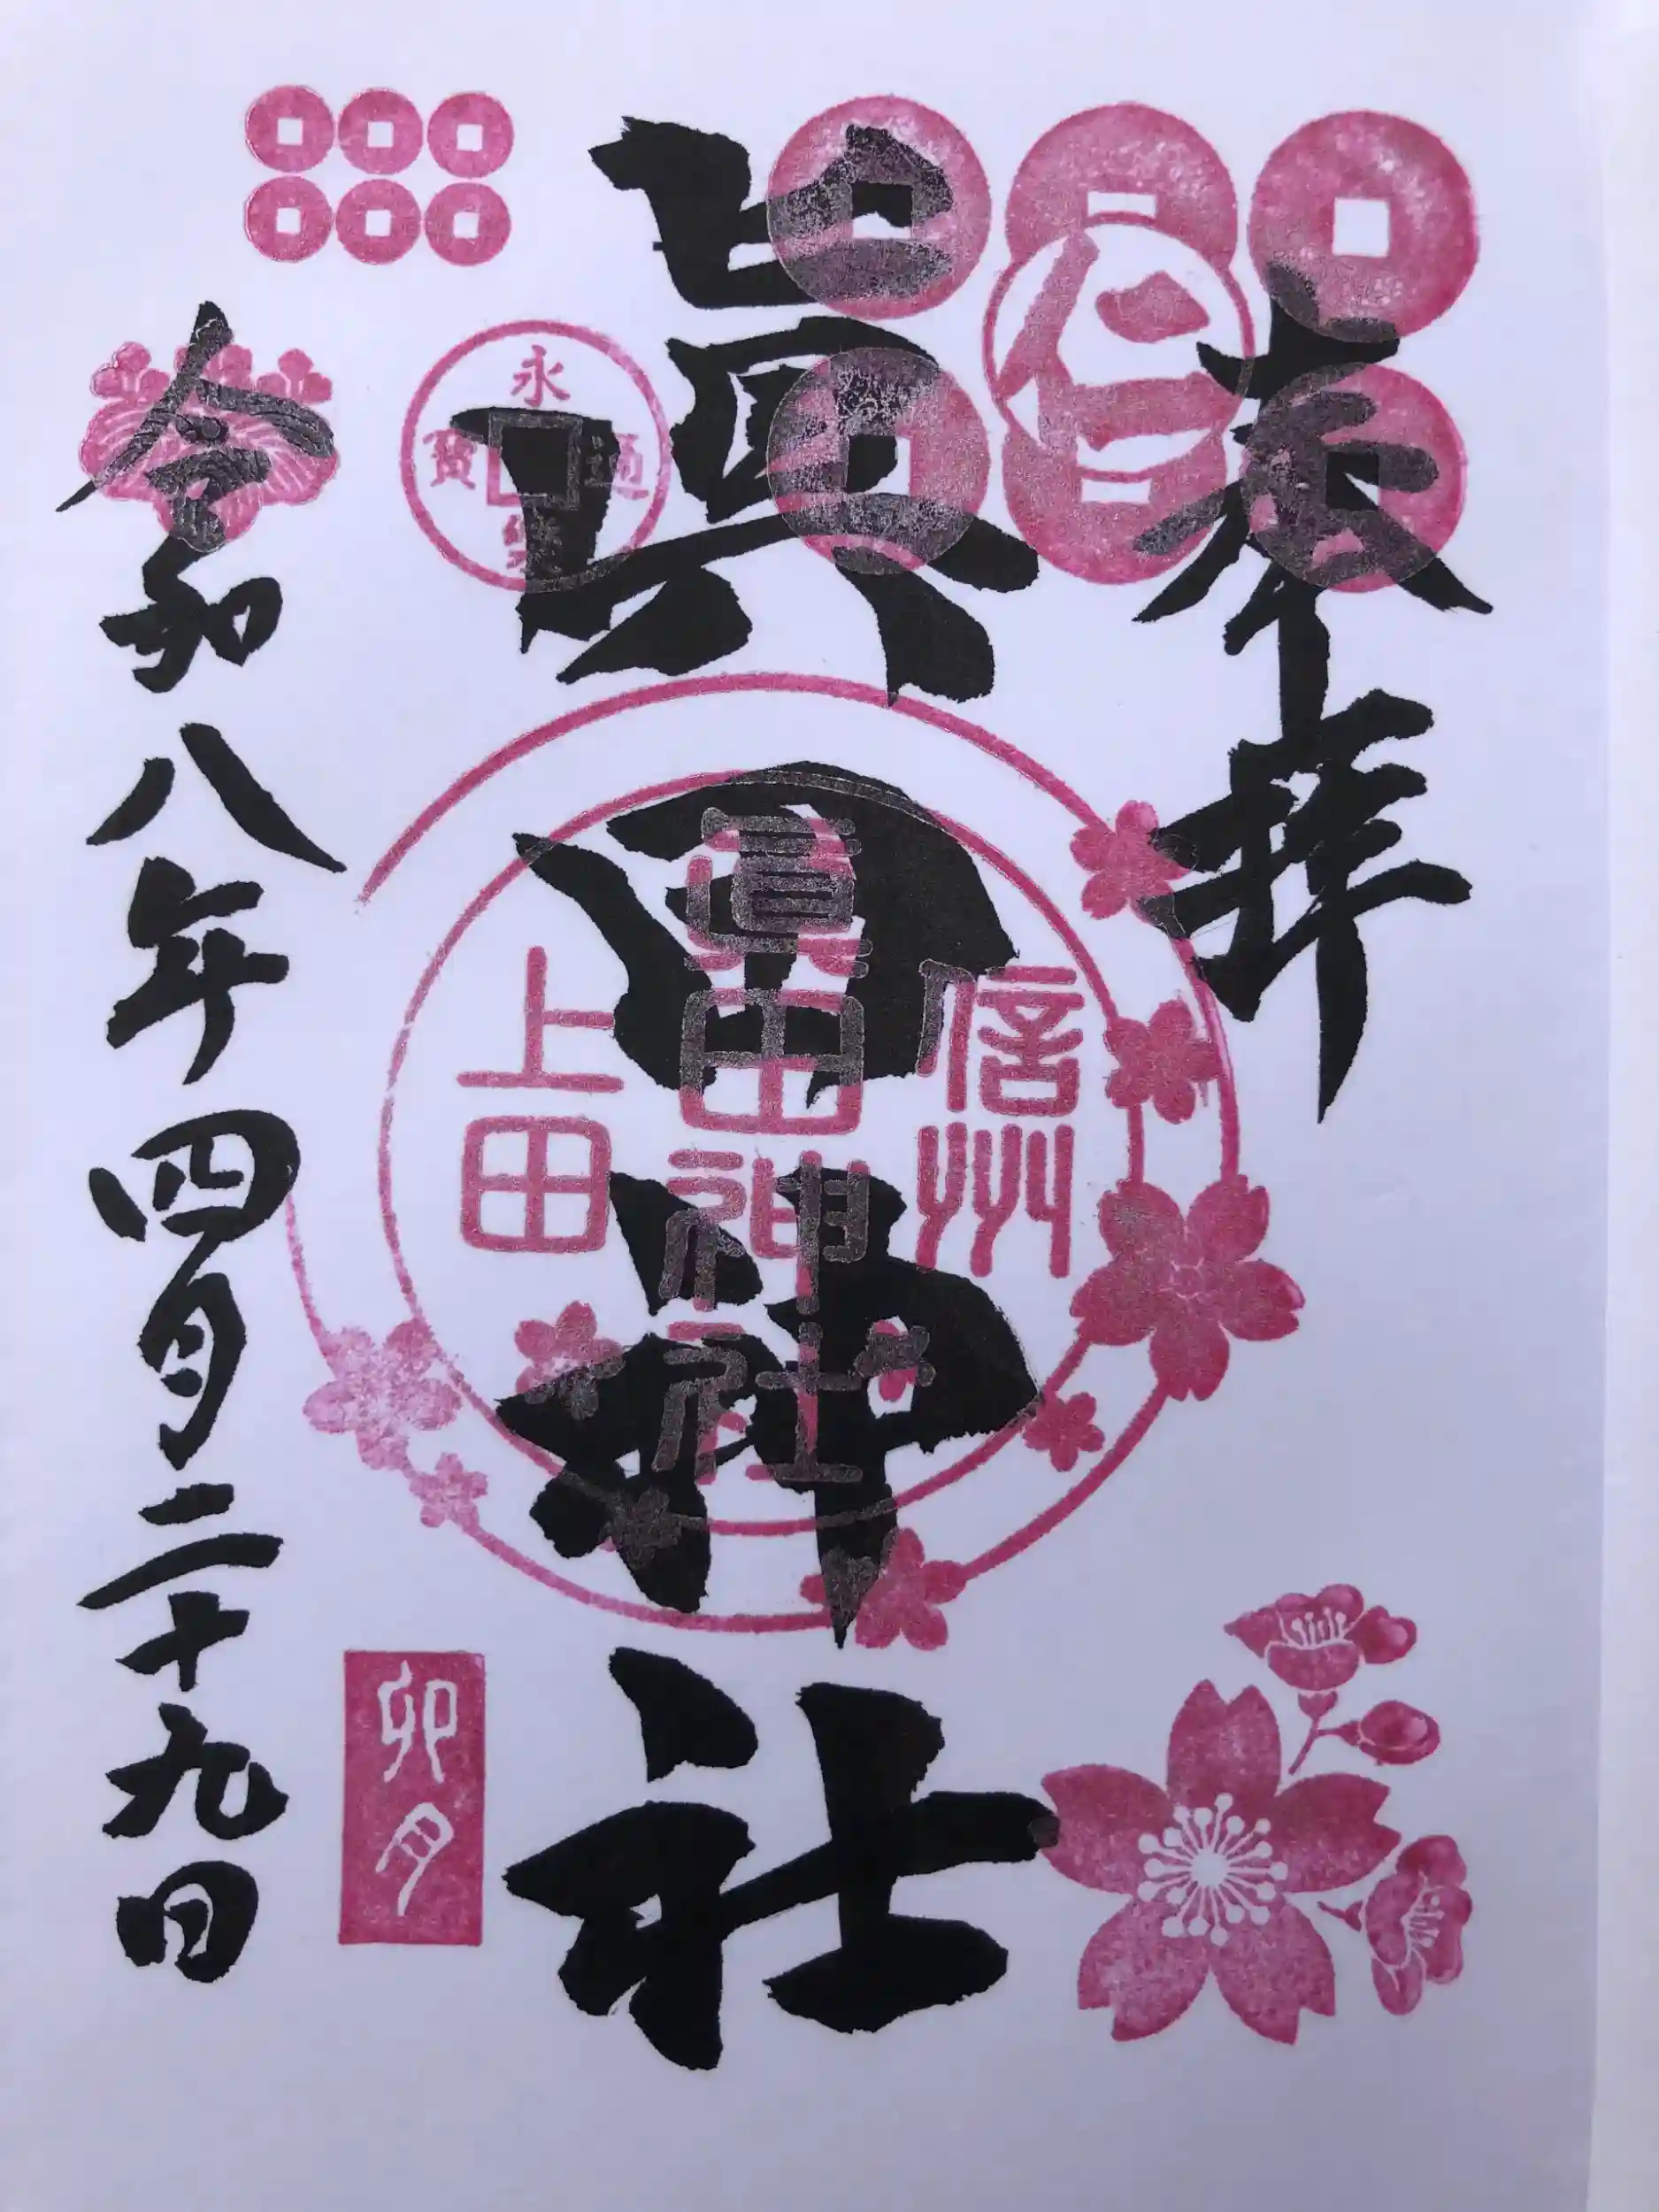 奉拝
仁
眞田神社
信州
眞田神社
上田
永樂通寳
卯月
令和八年四月二十九日